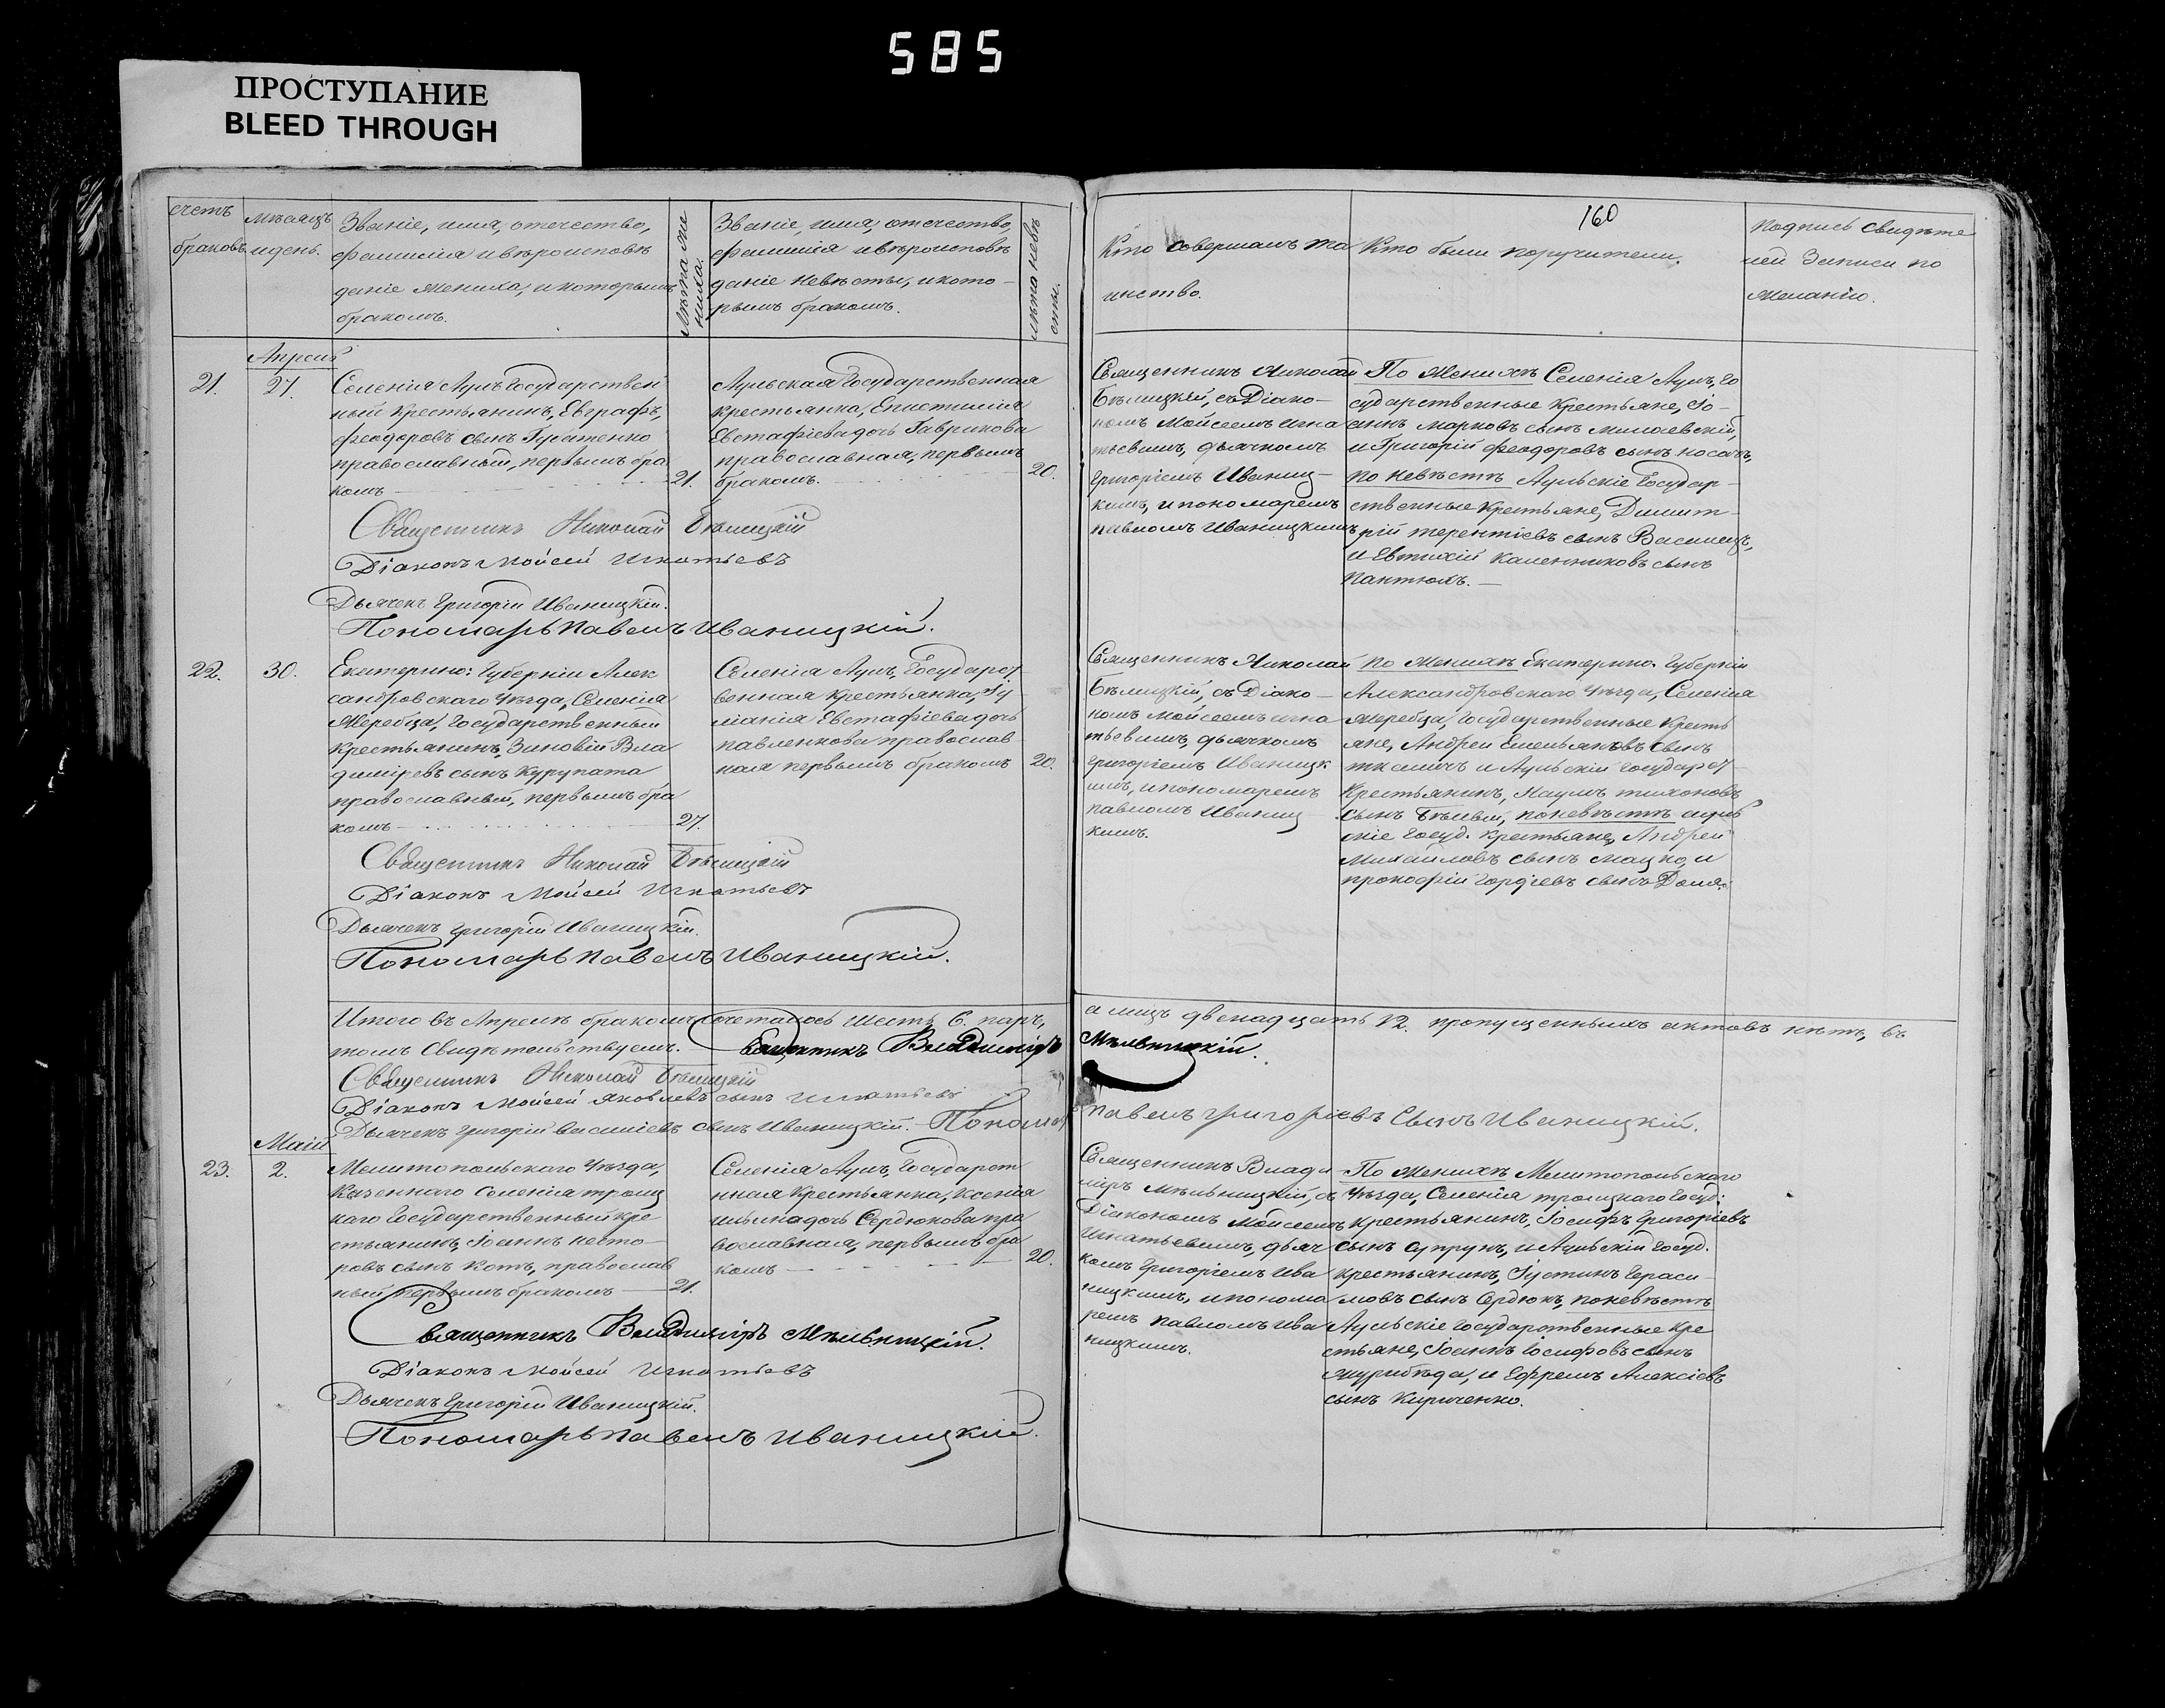 585
ПРОСТУПАНИЕ
BLEED THROUGH
160
счетъ
браковъ
мѣсяцъ
и день.
Званіе, имя, отечество,
фамилія и вѣроисповѣ
даніе жениха, и которымъ
бракомъ.
Лѣта же
ниха.
Званіе, имя, отечество,
фамилія и вѣроисповѣ
даніе невѣсты, и кото-
рымъ бракомъ.
лѣта невѣ
сты.
Кто совершалъ та
инство.
Кто были поручители.
Подпись свидѣте
лей записи по
желанію.
Апрель
21.
27.
Селенія Аулъ Государствен
ный крестьянинъ, Евграфъ,
Феодоровъ сынъ Губатенко
православный, первымъ бра
комъ
21.
Аульская Государственная
крестьянка, Епистимія
Евстафіева дочь Гаврикова
православная, первымъ
бракомъ.
20.
Священникъ Николай
Бѣлицкій, съ Діако-
номъ Мойсеемъ Игна
тьевымъ, дьячкомъ
Григоріемъ Иваниц-
кимъ, и пономаремъ
Павломъ Иваницкимъ
По женихѣ Селенія Аулъ, Го
сударственные крестьяне, Іо-
аннъ Марковъ сынъ Милаевскій,
и Григорій Феодоровъ сынъ Носачъ,
по невѣстѣ Аульскіе Государ-
ственные крестьяне, Димит-
рій Терентіевъ сынъ Василецъ,
и Евтихій Калениковъ сынъ
Пантюхъ.
Священникъ Николай Бѣлицкій
Діаконъ Мойсей Игнатьевъ
Дьячекъ Григорій Иваницкій.
Пономарь Павелъ Иваницкій.
22.
30.
Екатерино: Губерніи Алек
сандровскаго Уѣзда, Селенія
Жеребца, Государственный
крестьянинъ, Зиновій Вла
диміревъ сынъ Курупата
православный, первымъ бра
комъ
27.
Селенія Аулъ, Государст
венная крестьянка, Іу
ліанія Евстафіева дочь
Павленкова православ
ная первымъ бракомъ
20.
Священникъ Николай
Бѣлицкій, съ Діако-
номъ Мойсеемъ Игна
тьевымъ, дьячкомъ
Григоріемъ Иваницк
имъ, и пономаремъ
Павломъ Иваниц
кимъ.
По женихѣ Екатерино. Губерніи
Александровскаго Уѣзда, Селенія
Жеребца, Государственные кресть
яне, Андрей Емельяновъ сынъ
Ткаличъ и Аульскій Государст
крестьянинъ, Наумъ Тихоновъ
сынъ Бѣлый, по невѣстѣ Ауль
скіе Госуд. крестьяне, Андрей
Михаиловъ сынъ Мацко, и
Прокофій Гордіевъ сынъ Доля.
Священникъ Николай Бѣлицкій
Діаконъ Мойсей Игнатьевъ
Дьячекъ Григорій Иваницкій.
Пономарь Павелъ Иваницкій.
Итого въ Апрелѣ бракомъ сочеталось шесть 6. паръ, а лицъ двенадцать 12. пропущенныхъ актовъ нѣтъ, въ
томъ свидѣтельствуемъ. Священникъ Владиміръ Мѣльницкій.
Священникъ Николай Бѣлицкій
Діаконъ Мойсей Яковлевъ сынъ Игнатьевъ
Дьячекъ Григорій Василіевъ сынъ Иваницкій. Пономарь Павелъ Григоріевъ сынъ Иваницкій.
Маій
23.
2.
Мелитопольскаго Уѣзда,
Казеннаго Селенія Троиц
каго Государственный кре
стьянинъ, Іоаннъ Несто-
ровъ сынъ Котъ, православ
ный первымъ бракомъ
21.
Селенія Аулъ, Государст
нная крестьянка, Ксенія
Ильина дочь Сердюкова пра
вославная, первымъ бра
комъ
20.
Священникъ Влади
міръ Мѣльницкій, съ
Діакономъ Мойсеемъ
Игнатьевымъ, дьяч
комъ Григоріемъ Ива
ницкимъ, и понома
ремъ Павломъ Ива
ницкимъ.
По женихѣ Мелитопольскаго
Уѣзда, Селенія Троицкаго Госуд:
крестьянинъ, Іосифъ Григоріевъ
сынъ Супрунъ, и Аульскій Госуд.
крестьянинъ, Іустинъ Гераси-
мовъ сынъ Сердюкъ, по невѣстѣ
Аульскіе Государственные кре
стьяне, Іоаннъ Іосифовъ сынъ
Журибѣда, и Ефремъ Алексіевъ
сынъ Кириченко.
Священникъ Владиміръ Мѣльницкій.
Діаконъ Мойсей Игнатьевъ
Дьячекъ Григорій Иваницкій.
Пономарь Павелъ Иваницкій.